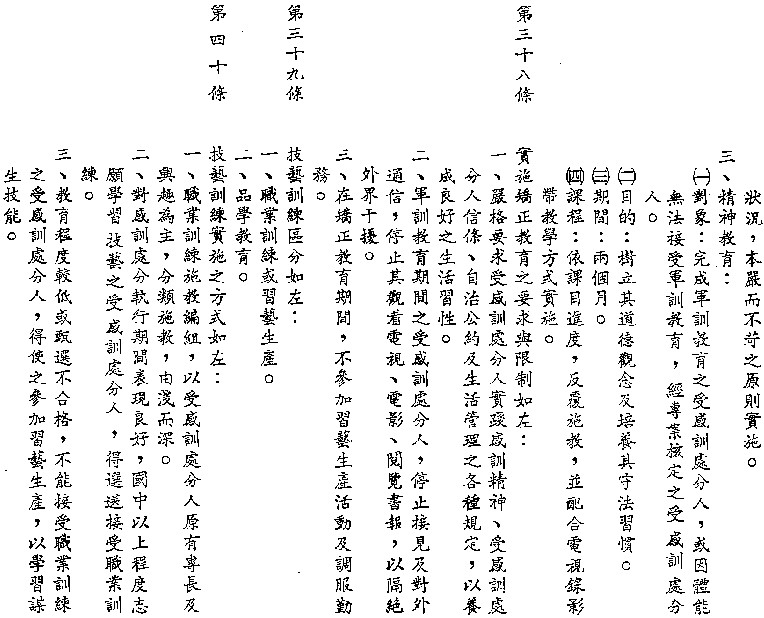 狀況，本嚴而不苛之原則實施。
三、精神教育：
㈠對象：完成軍訓教育之受感訓處分人，或因體能
無法接受軍訓教育，經專案核定之受感訓處分
人。
㈡目的：樹立其道德觀念及培養其守法習慣。
㈢期間：兩個月。
㈣課程：依課目進度，反覆施教，並配合電視錄影
帶教學方式實施。
第三十八條 實施矯正教育之要求與限制如左：
一、嚴格要求受感訓處分人實踐感訓精神、受感訓處
分人信條、自治公約及生活管理之各種規定，以養
成良好之生活習性。
二、軍訓教育期間之受感訓處分人，停止接見及對外
通信，停止其觀看電視、電影、閱覽書報，以隔絕
外界干擾。
三、在矯正教育期間，不參加習藝生產活動及調服勤
務。
第三十九條 技藝訓練區分如左：
一、職業訓練或習藝生產。
二、品學教育。
第四十條 技藝訓練實施之方式如左：
一、職業訓練施教編組，以受感訓處分人原有專長及
興趣為主，分類施教，由淺而深。
二、對感訓處分執行期間表現良好，國中以上程度志
願學習技藝之受感訓處分人，得選送接受職業訓
練。
三、教育程度較低或甄選不合格，不能接受職業訓練
之受感訓處分人，得使之參加習藝生產，以學習謀
生技能。